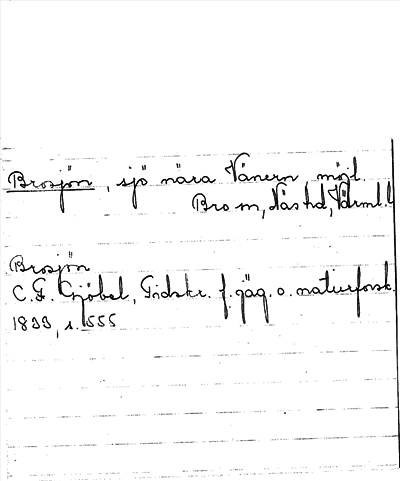 Brosjön, sjö nära Vänern, möjl.
Bro sn, Näs hd, Värml. l.
Brosjön
C. F. Gjöbel, Tidskr. f. jäg. o. naturforsk.
1833, s. 555